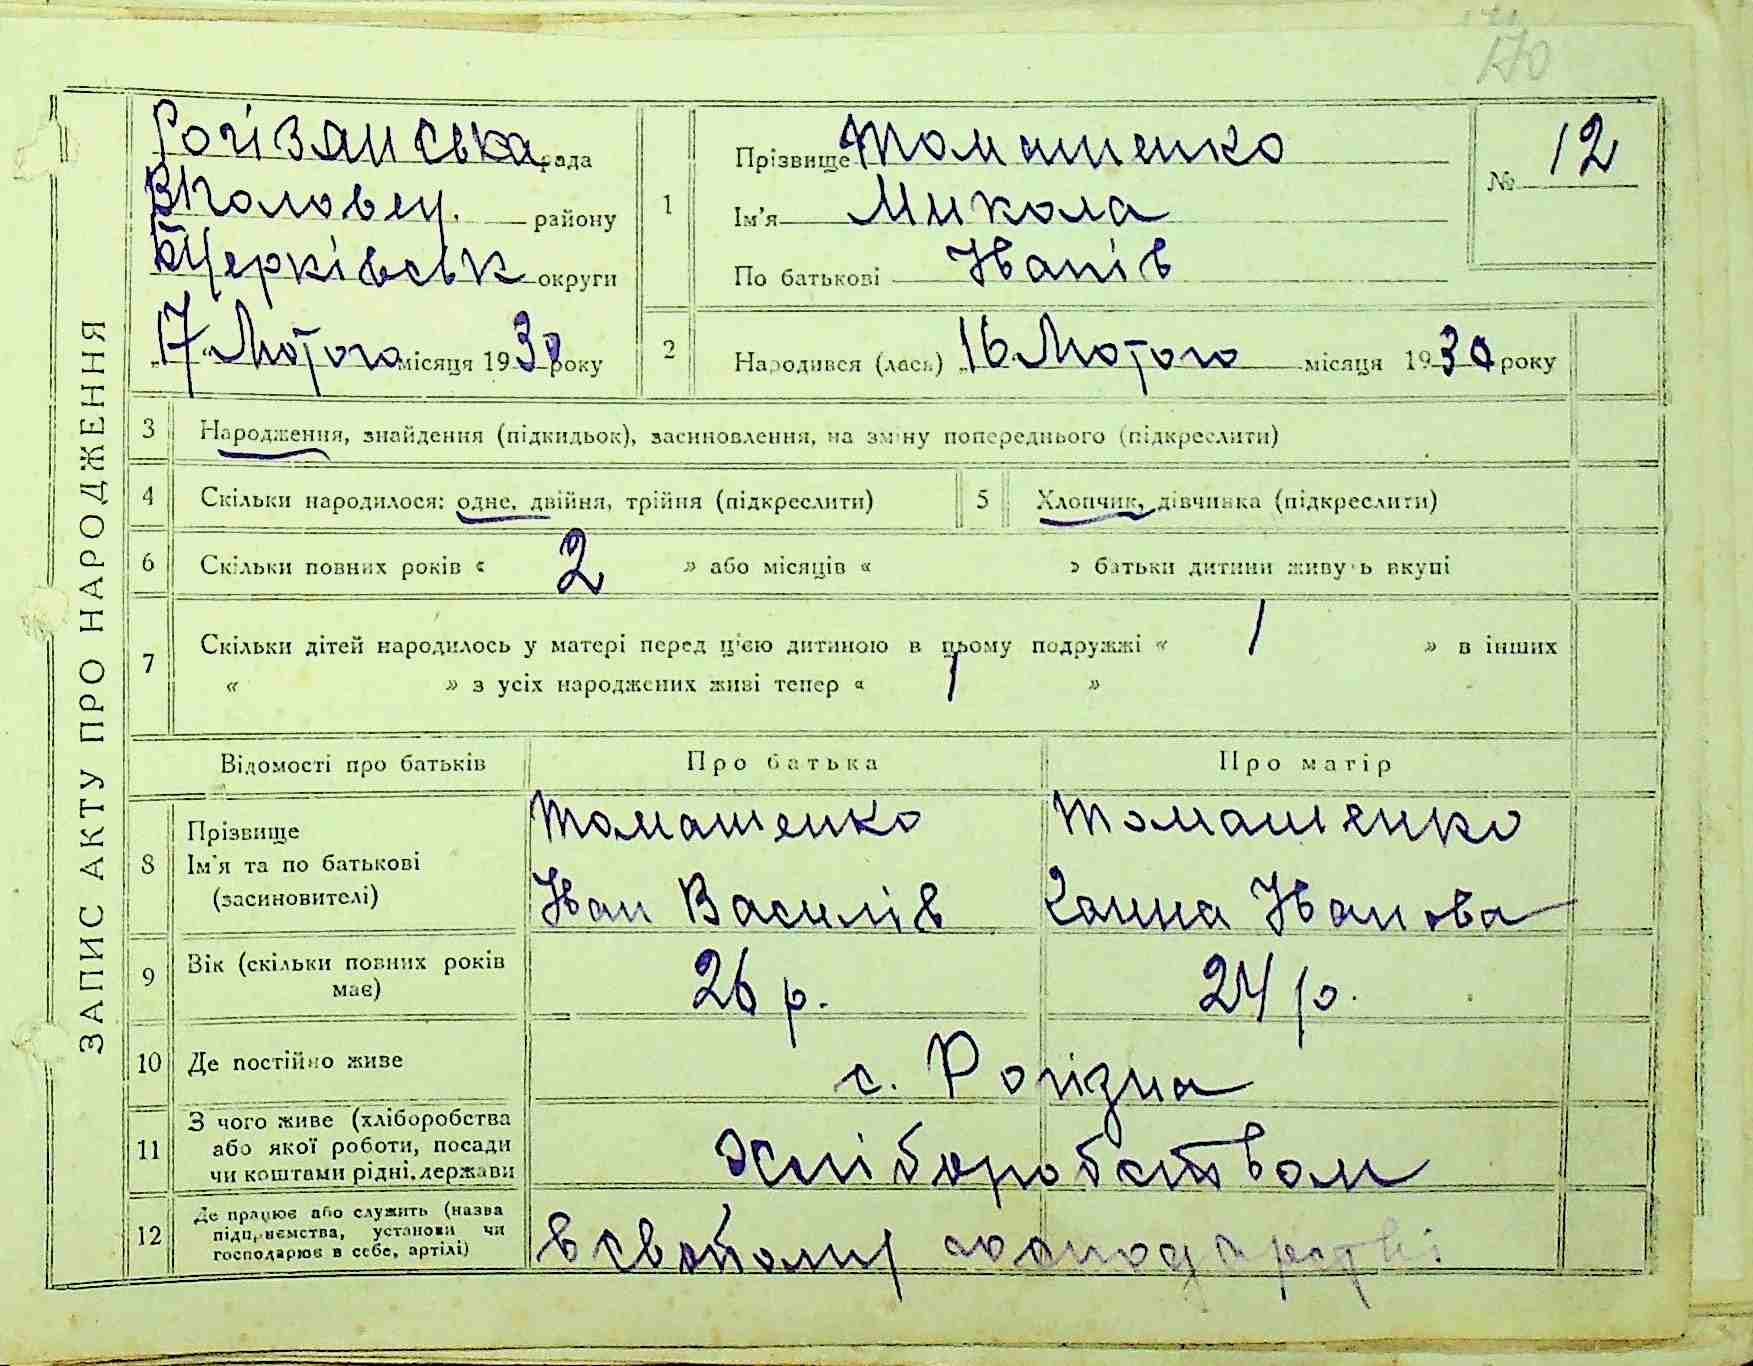 170
Рогізянська рада
Вполовец. району
БЦерківськ округи
„17“ Лютого місяця 1930 року
1
Прізвище Томашенко
Ім'я Микола
По батькові Іванів
№ 12
2
Народився (лась) „16 Лютого місяця 1930 року
ЗАПИС АКТУ ПРО НАРОДЖЕННЯ
3 Народження, знайдення (підкидьок), засиновлення, на зміну попереднього (підкреслити)
4 Скільки народилося: одне, двійня, трійня (підкреслити) 5 Хлопчик, дівчинка (підкреслити)
6 Скільки повних років « 2 » або місяців « » батьки дитини живуть вкупі
7 Скільки дітей народилось у матері перед ц'єю дитиною в цьому подружжі « 1 » в інших
« » з усіх народжених живі тепер « 1 »
Відомості про батьків Про батька Про матір
8 Прізвище
Ім'я та по батькові
(засиновителі)
Томашенко
Іван Василів
Томашенко
Ганна Іванова
9 Вік (скільки повних років
має)
26 р. 24 р.
10 Де постійно живе с. Рогізна
11 З чого живе (хліборобства
або якої роботи, посади
чи коштами рідні, держави
Хліборобством
12 Де працює або служить (назва
підприємства, установи чи
господарює в себе, артілі)
в своїому господарстві